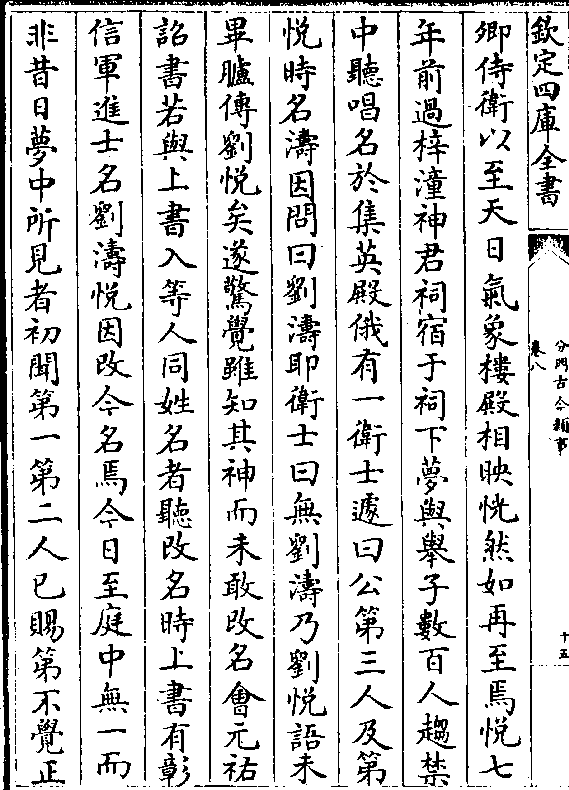 欽定四庫全書
分門古今類事
卷八
十五
卿侍衛以至天日氣象樓殿相映恍然如再至焉悦七
年前過梓潼神君祠宿于祠下夢與舉子數百人趨禁
中聽唱名於集英殿俄有一衛士遽曰公第三人及第
悦時名濤因問曰劉濤耶衛士曰無劉濤乃劉悦語未
畢臚傳劉悦矣遂驚覺雖知其神而未敢改名會元祐
詔書若與上書入等人同姓名者聽改名時上書有彰
信軍進士名劉濤悦因改今名焉今日至庭中無一而
非昔日夢中所見者初聞第一第二人已賜第不覺正